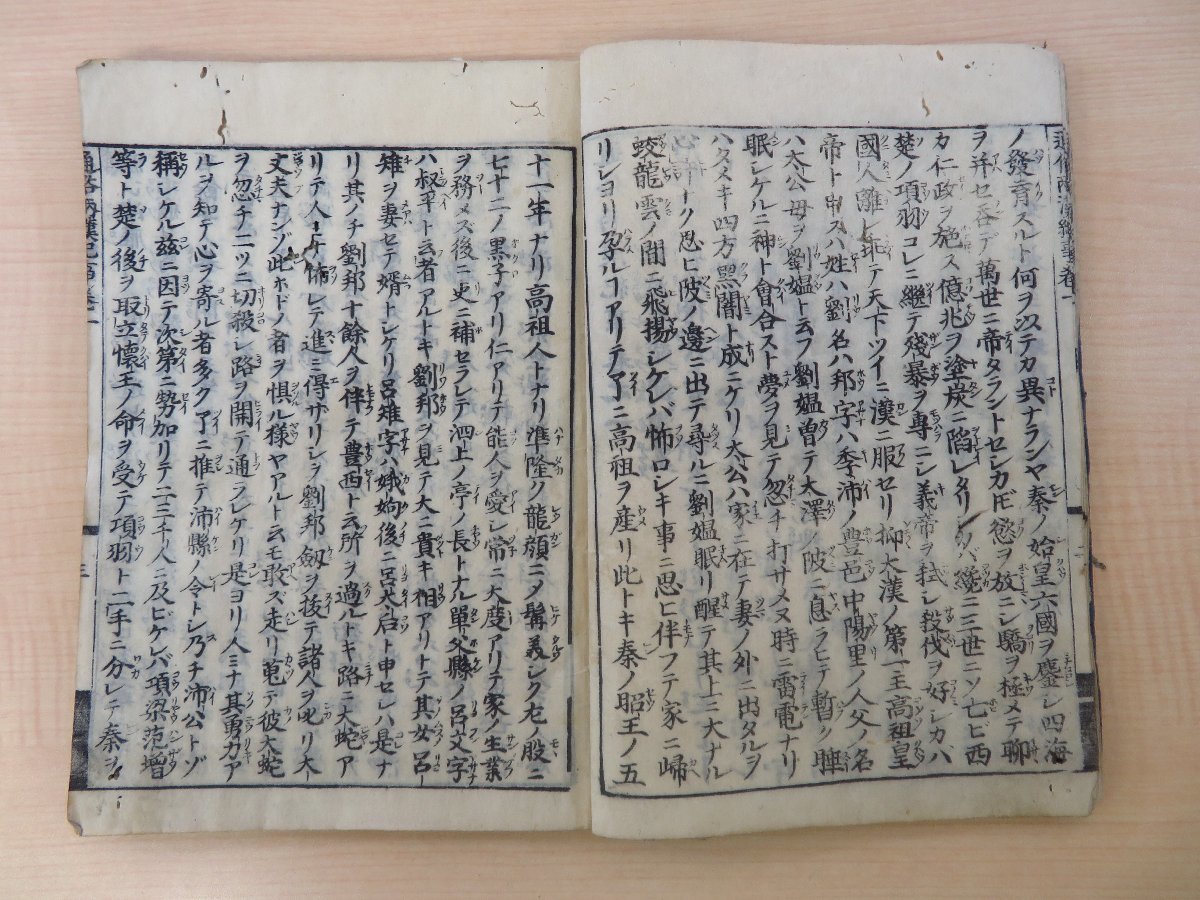 ノ發育スルト何ヲ以テカ異ナランヤ秦ノ始皇六國ヲ鏖シ四海
ヲ并セ呑デ萬世ニ帝タラントセシカ𪜈慾ヲ放ニシ驕ヲ極メテ聊
カ仁政ヲ施ス億兆ヲ塗炭ニ陷レタリシバ纔ニ三世ニソ亡ビ西
楚ノ項羽コレニ繼テ殘暴ヲ專ニシ義帝ヲ弑シ殺伐ヲ好シカハ
國人離レ乖テ天下ツイニ漢ニ服セリ抑大漢ノ第一主高祖皇
帝ト申スハ姓ハ劉名ハ邦字ハ季沛ノ豊邑中陽里ノ人父ノ名
ハ太公母ヲ劉媼ト云フ劉媼曽テ大澤ノ陂ニ息ラヒテ暫ク睡
眠シケルニ神ト會合スト夢ヲ見テ忽チ打サメヌ時ニ雷電ナリ
ハタメキ四方黒闇ト成ニケリ太公ハ家ニ在テ妻ノ外ニ出タルヲ
心ナク忍ヒ陂ノ邊ニ出テ尋ルニ劉媼眠リ醒テ其上ニ大ナル
蛟龍雲ノ間ニ飛揚シケレバ怖ロシキ事ニ思ヒ伴フテ家ニ歸
リシヨリ孕ルヿアリテ了ニ高祖ヲ産リ此トキ秦ノ昭王ノ五
十一年ナリ高祖人トナリ準隆ク龍顔ニメ鬚義シク左ノ股ニ
七十二ノ黒子アリ仁アリテ能人ヲ愛シ常ニ大度アリテ家ノ生業
ヲ務メズ後ニ吏ニ補セラレテ泗上ノ亭ノ長トナル單父縣ノ呂文字
ハ叔平ト云者アルトキ劉邦ヲ見テ大ニ貴キ相アリトテ其女呂
雉ヲ妻セテ婿トシケリ呂雉字ハ娥姁後ニ呂太后ト申セシハ是ナ
リ其ノチ劉邦十餘人ヲ伴テ豊西ト云所ヲ過ルトキ路ニ大蛇ア
リテ人ミナ怖レテ進ミ得ザリシヲ劉邦劔ヲ抜テ諸人ヲ叱リ大
丈夫ナンゾ此ホドノ者ヲ惧ル様ヤアルト云モ敢ズ走リ蒐テ彼大蛇
ヲ忽チ二ツニ切殺シ路ヲ開テ通ラレケリ是ヨリ人ミナ其勇力ア
ルヲ知テ心ヲ寄ル者多ク了ニ推テ沛縣ノ令トシ乃チ沛公トゾ
稱シケル茲ニ因テ次第ニ勢加リテ二三千人ニ及ビケレバ項梁范増
等ト楚ノ後ヲ取立懷王ノ命ヲ受テ項羽ト二手ニ分レテ秦ヲ